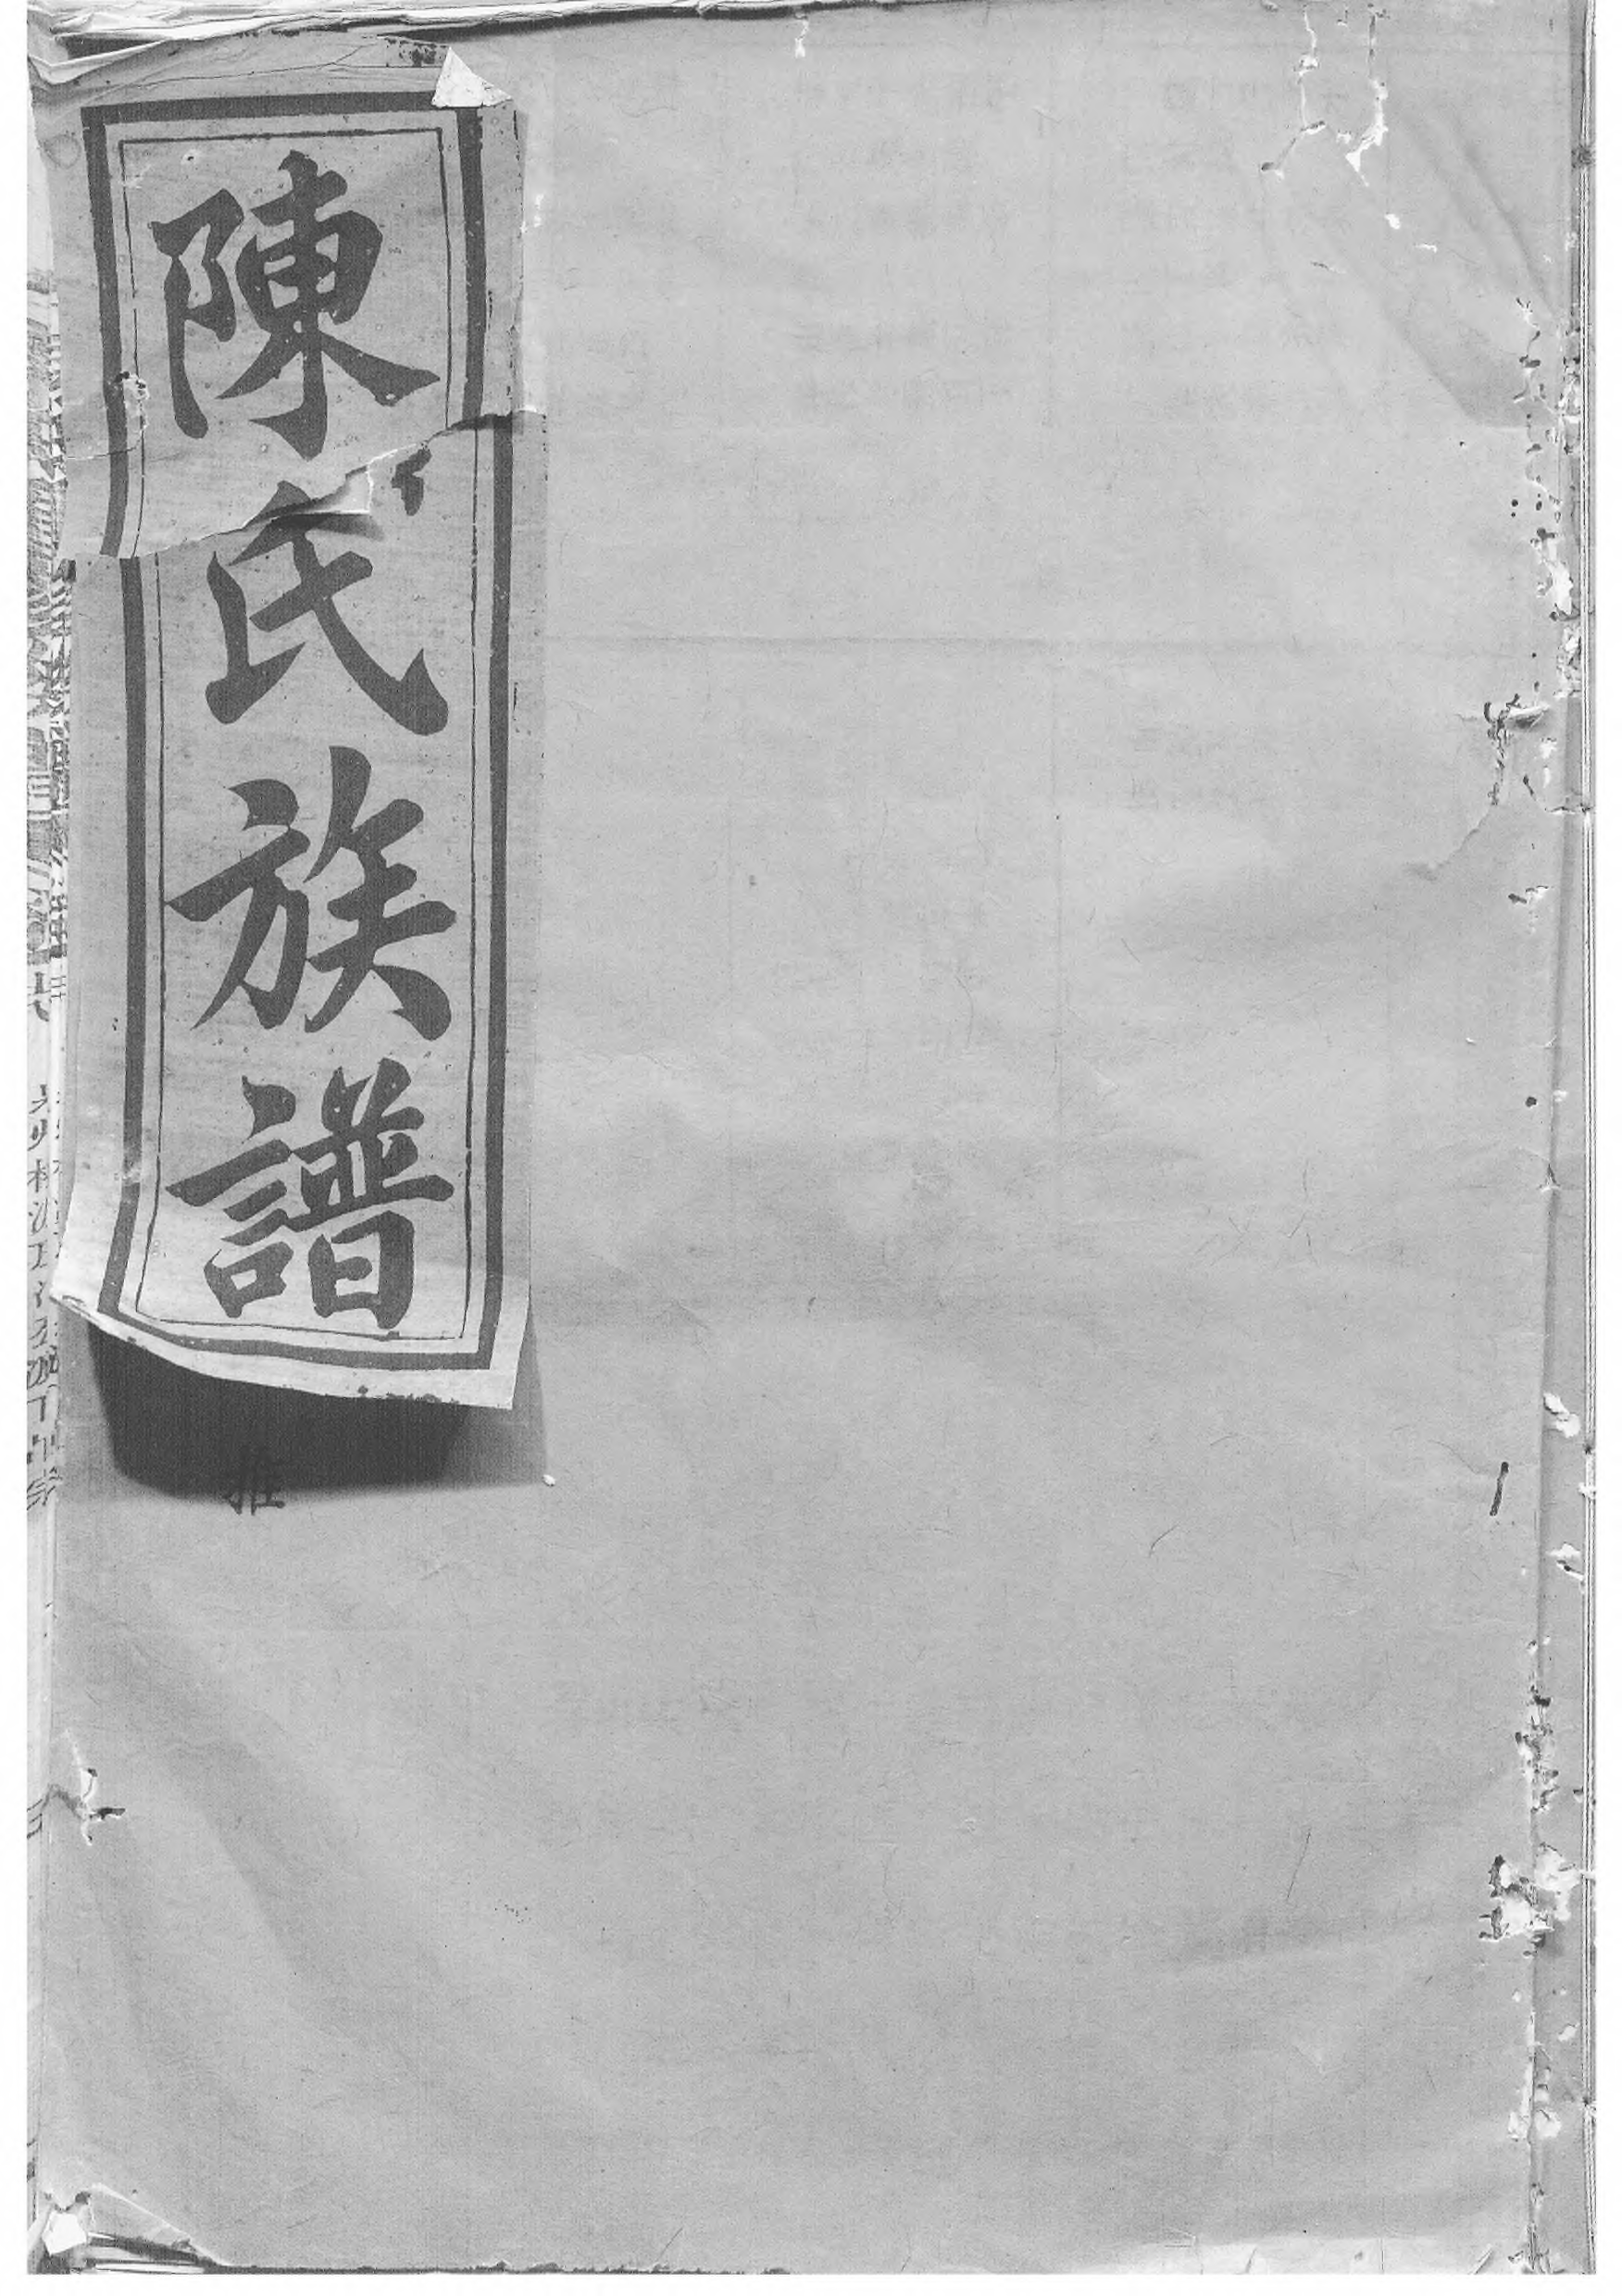 陳氏族譜
推